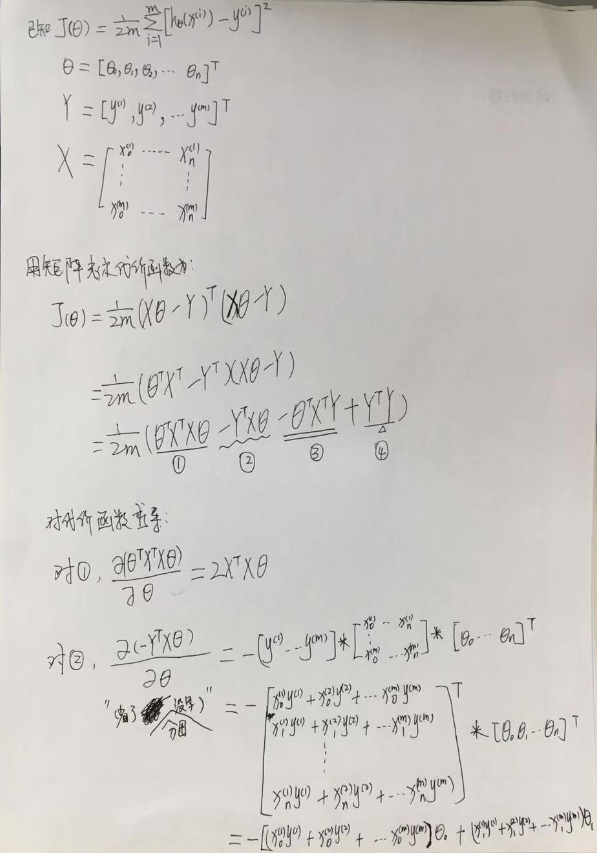 已知 J(θ) = 1/2m Σ_{i=1}^{m} [h_θ(x^{(i)}) - y^{(i)}]^2
θ = [θ_0, θ_1, θ_2, ... θ_n]^T
Y = [y^{(1)}, y^{(2)}, ... y^{(m)}]^T
X = [ x_0^{(1)} ..... x_n^{(1)}
⋮ ⋮
x_0^{(m)} .... x_n^{(m)} ]
用矩阵表示代价函数为:
J(θ) = 1/2m (Xθ - Y)^T (Xθ - Y)
= 1/2m (θ^T X^T - Y^T)(Xθ - Y)
= 1/2m (θ^T X^T Xθ - Y^T Xθ - θ^T X^T Y + Y^T Y)
① ② ③ ④
对代价函数求导:
对①, ∂(θ^T X^T Xθ)/∂θ = 2X^T Xθ
对②, ∂(-Y^T Xθ)/∂θ = -[y^{(1)} ... y^{(m)}] * [ x_0^{(1)} ... x_n^{(1)} ⋮ x_0^{(m)} ... x_n^{(m)} ] * [θ_0 ... θ_n]^T
"(省了 没写)" = - [ x_0^{(1)}y^{(1)} + x_0^{(2)}y^{(2)} + ... x_0^{(m)}y^{(m)}
分母
x_1^{(1)}y^{(1)} + x_1^{(2)}y^{(2)} + ... x_1^{(m)}y^{(m)}
⋮
x_n^{(1)}y^{(1)} + x_n^{(2)}y^{(2)} + ... x_n^{(m)}y^{(m)} ]^T * [θ_0 θ_1 ... θ_n]^T
= -[(x_0^{(1)}y^{(1)} + x_0^{(2)}y^{(2)} + ... x_0^{(m)}y^{(m)})θ_0 + (x_1^{(1)}y^{(1)} + x_1^{(2)}y^{(2)} + ... x_1^{(m)}y^{(m)})θ_1